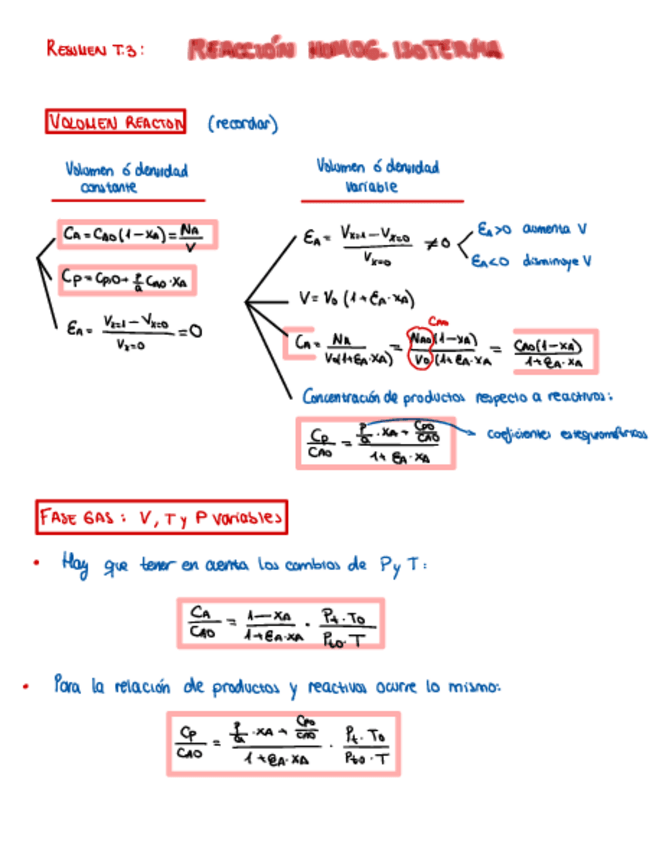 RESUMEN T.3: REACCIÓN HOMOG. ISOTERMA
VOLUMEN REACTOR (recordar)
Volumen ó densidad constante
C_A = C_A0 (1 - x_A) = N_A / V
C_P = C_P0 + p/a C_A0 · x_A
ε_A = (V_x=1 - V_x=0) / V_x=0 = 0
Volumen ó densidad variable
ε_A = (V_x=1 - V_x=0) / V_x=0 ≠ 0
ε_A>0 aumenta V
ε_A<0 disminuye V
V = V_0 (1 + ε_A · x_A)
C_A0
C_A = N_A / (V_0(1+ε_A·x_A)) = N_A0 (1-x_A) / (V_0 (1+ε_A·x_A) = C_A0 (1-x_A) / (1+ε_A·x_A)
Concentración de productos respecto a reactivos:
C_P / C_A0 = (p/a · x_A + C_P0/C_A0) / (1 + ε_A · x_A)
coeficientes estequiométricos
FASE GAS: V, T y P variables
• Hay que tener en cuenta los cambios de P y T:
C_A / C_A0 = (1-x_A) / (1+ε_A·x_A) · (P_t · T_0) / (P_t0 · T)
• Para la relación de productos y reactivos ocurre lo mismo:
C_P / C_A0 = (p/a · x_A + C_P0/C_A0) / (1+ε_A·x_A) · (P_t · T_0) / (P_t0 · T)